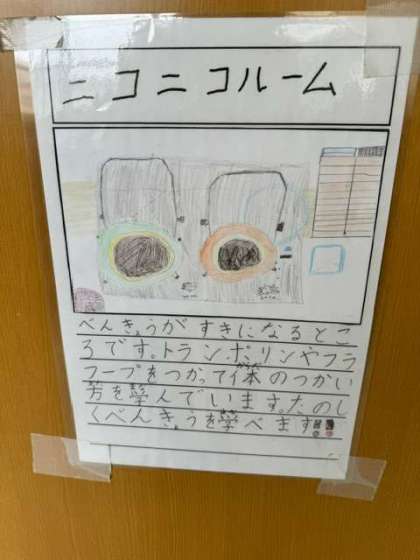 ニコニコルーム
べんきょうがすきになるとこ
ろです。トランポリンやフラ
フープをつかって体のつかい
方を学んでいます。たのし
くべんきょうを学べます!!